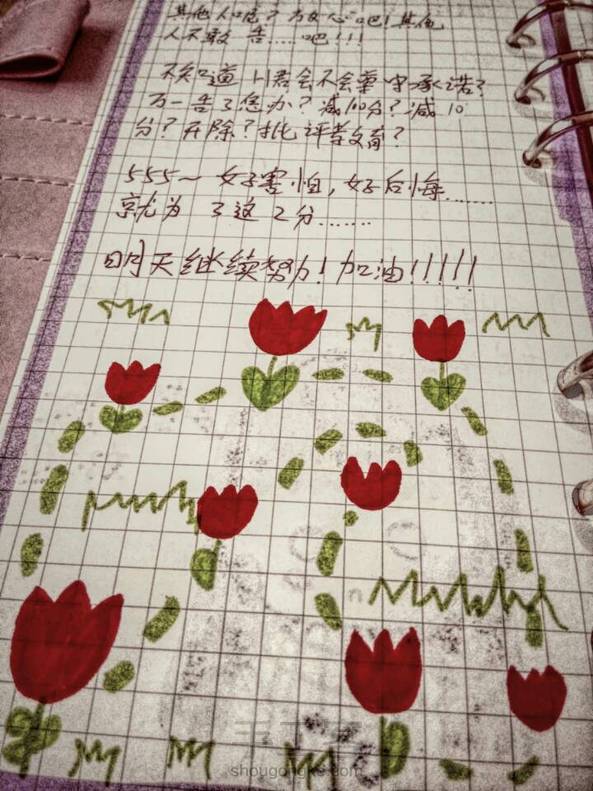 其他人呢？放心吧！其他
人不敢告……吧！！！
不知道H君会不会遵守承诺？
万一告了怎办？减100分？减10
分？开除？批评教育？
555～好害怕，好后悔……
就为了这2分……
明天继续努力！加油！！！！！
shougongke.com